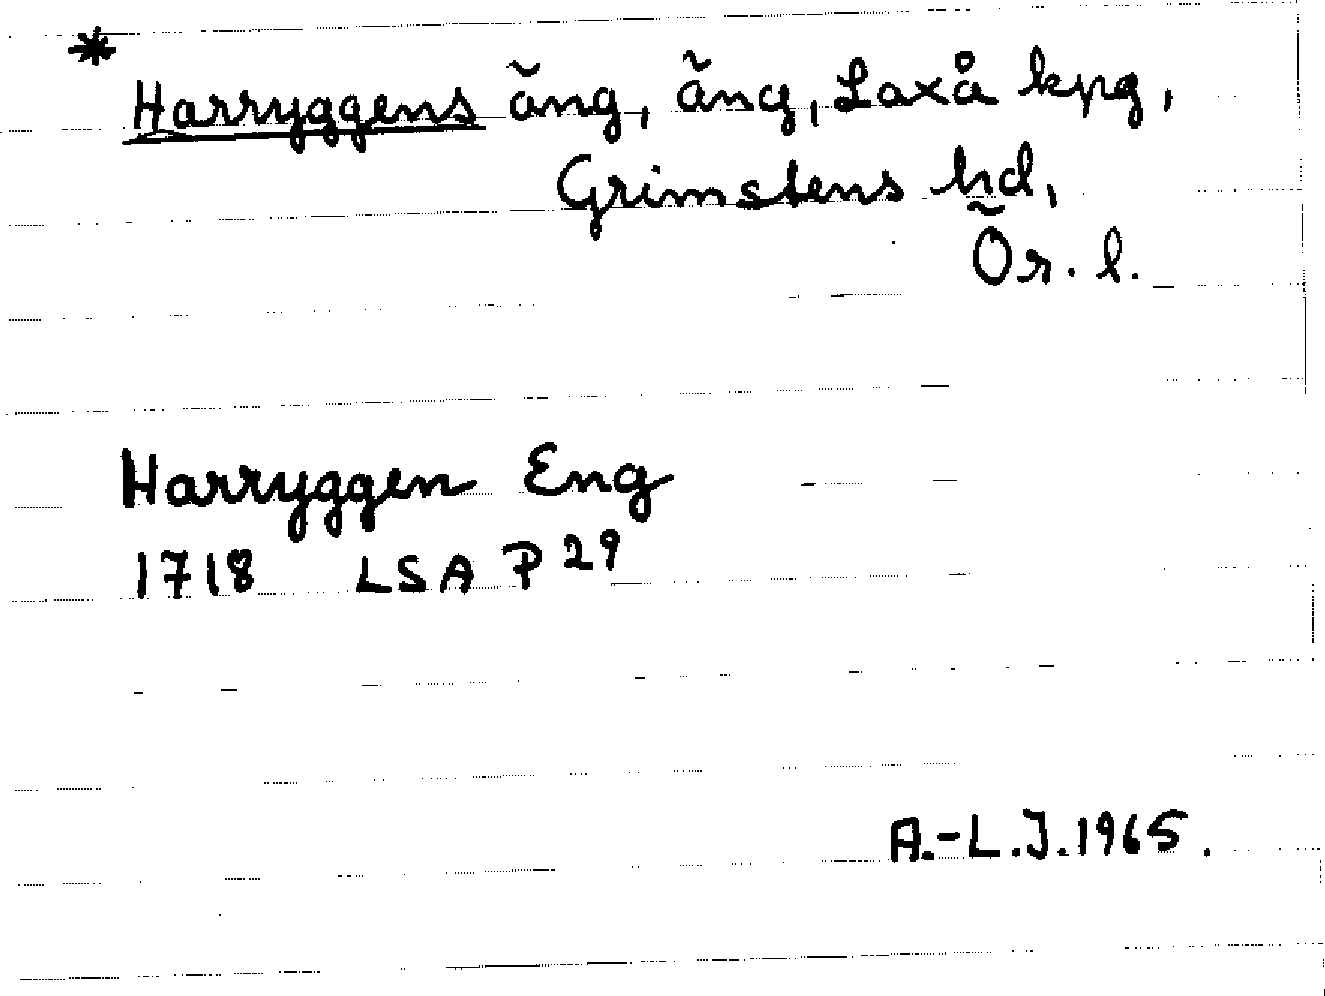 *
Harryggens äng, äng, Laxå kpg,
Grimstens hd,
Ör. l.
Harryggen Eng
1718 LSA P 29
A.-L.J. 1965.